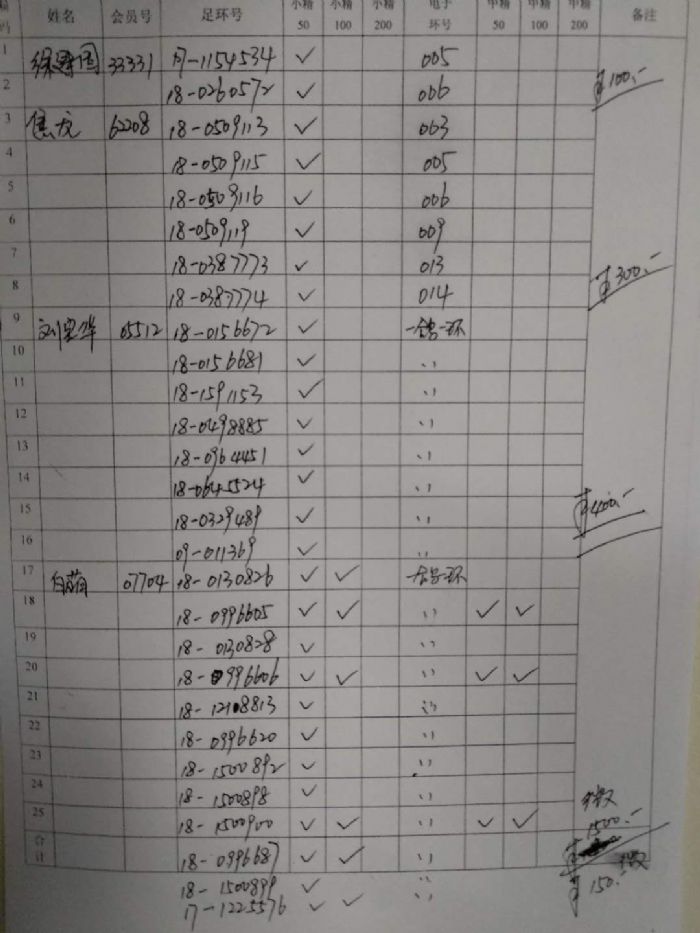 编码 姓名 会员号 足环号 小精50 小精100 小精200 电子环号 中精50 中精100 中精200 备注
1 徐建国 33331 17-1154534 ✓ 005
2 18-0260572 ✓ 006 ¥100.-
3 焦龙 62208 18-0509113 ✓ 063
4 18-0509115 ✓ 005
5 18-0509116 ✓ 006
6 18-0509119 ✓ 009
7 18-0387773 ✓ 013
8 18-0387774 ✓ 014 ¥300.-
9 刘宝华 05512 18-0156672 ✓ 一鸽一环
10 18-0156681 ✓ 〃
11 18-1591153 ✓ 〃
12 18-0498885 ✓ 〃
13 18-0964451 ✓ 〃
14 18-0645524 ✓
15 18-0329489 ✓ 〃 ¥400.-
16 09-011369 ✓ 〃
17 白 07704 18-0130826 ✓ ✓ 一鸽一环
18 18-0996605 ✓ ✓ 〃 ✓ ✓
19 18-0130828 ✓ 〃
20 18-0996606 ✓ ✓ 〃 ✓ ✓
21 18-12108813 ✓ 〃
22 18-0996620 ✓ 〃
23 18-1500892 ✓ 〃
24 18-1500898 ✓ 〃
25 18-1500900 ✓ ✓ 〃 ✓ ✓ 1500.-
合计 18-0996687 ✓ ✓ 〃
18-1500899 ✓ 〃 ¥150.-
17-1225576 ✓ ✓ 〃